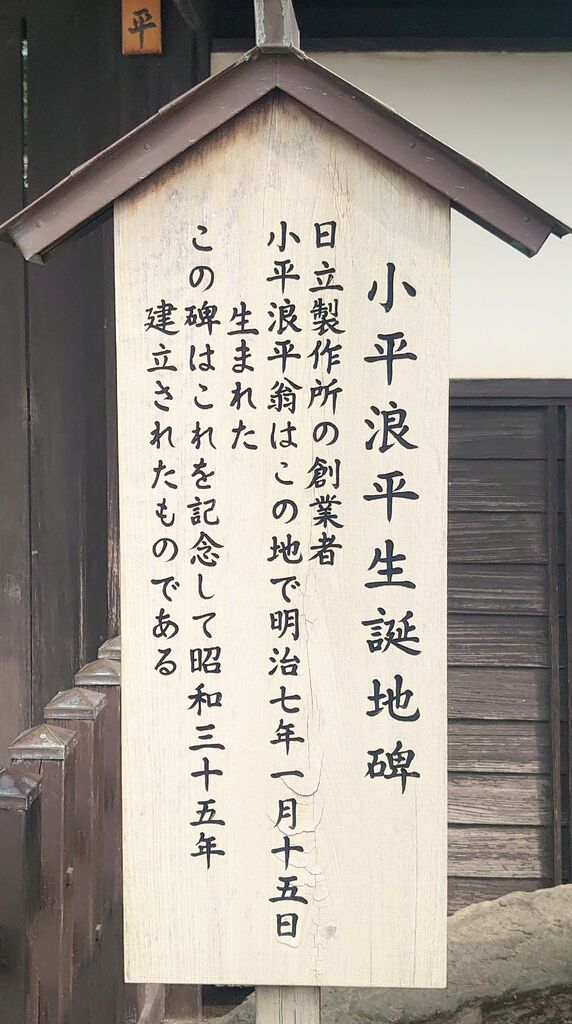 平
小平浪平生誕地碑
日立製作所の創業者
小平浪平翁はこの地で明治七年一月十五日
生まれた
この碑はこれを記念して昭和三十五年
建立されたものである